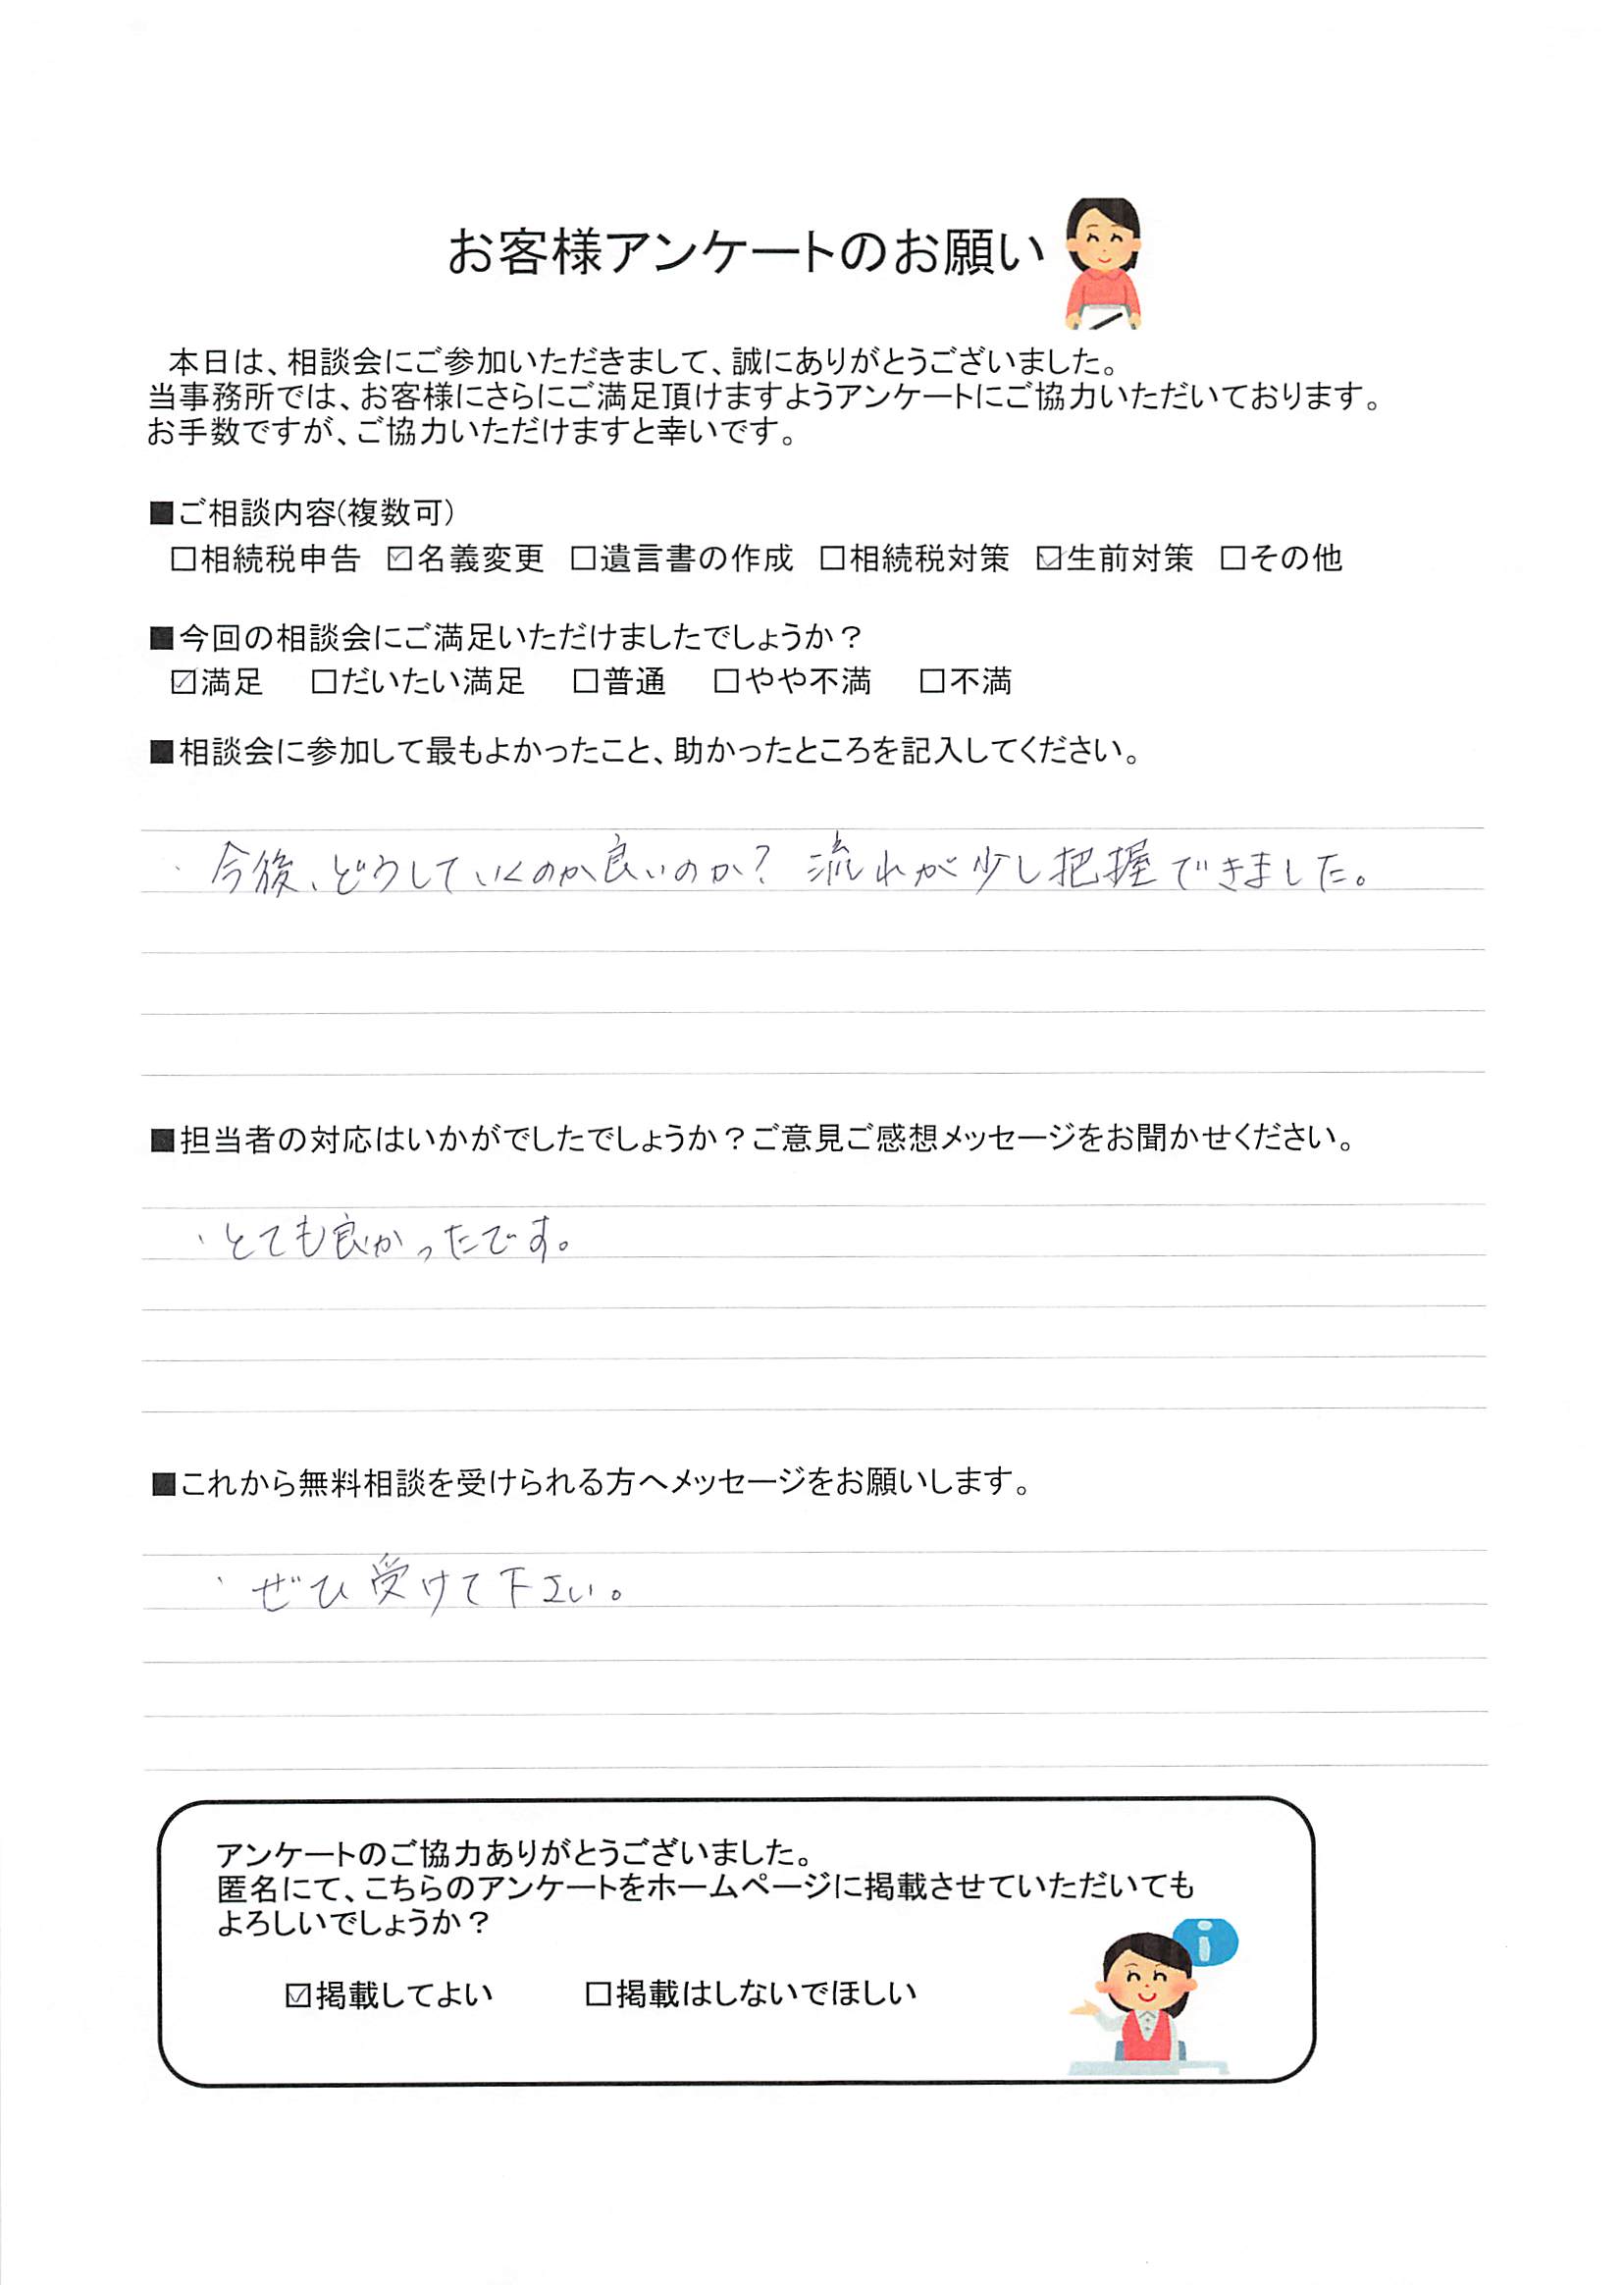 お客様アンケートのお願い
本日は、相談会にご参加いただきまして、誠にありがとうございました。
当事務所では、お客様にさらにご満足頂けますようアンケートにご協力いただいております。
お手数ですが、ご協力いただけますと幸いです。
■ご相談内容(複数可)
□相続税申告 ☑名義変更 □遺言書の作成 □相続税対策 ☑生前対策 □その他
■今回の相談会にご満足いただけましたでしょうか？
☑満足 □だいたい満足 □普通 □やや不満 □不満
■相談会に参加して最もよかったこと、助かったところを記入してください。
・今後、どうしていくのが良いのか？ 流れが少し把握できました。
■担当者の対応はいかがでしたでしょうか？ご意見ご感想メッセージをお聞かせください。
・とても良かったです。
■これから無料相談を受けられる方へメッセージをお願いします。
・ぜひ受けて下さい。
アンケートのご協力ありがとうございました。
匿名にて、こちらのアンケートをホームページに掲載させていただいても
よろしいでしょうか？
☑掲載してよい □掲載はしないでほしい